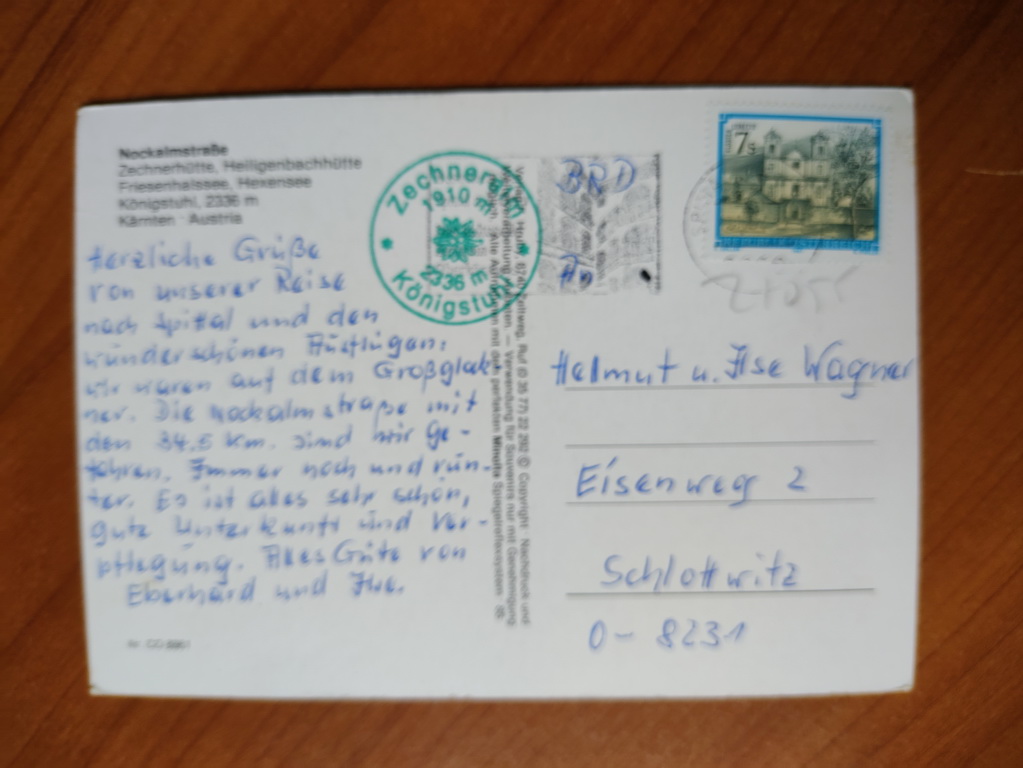 Nockalmstraße
Zechnerhütte, Heiligenbachhütte
Friesenhalssee, Hexensee
Königstuhl, 2336 m
Kärnten · Austria
Herzliche Grüße
von unserer Reise
nach Spittal und den
wunderschönen Ausflügen,
wir waren auf dem Großglok-
ner. Die Nockalmstraße mit
den 34,5 Km. sind wir ge-
fahren. Immer hoch und run-
ter. Es ist alles sehr schön,
gute Unterkunft und Ver-
pflegung. Alles Gute von
Eberhard und
Zechneralm
1910 m
2336 m
Königstuhl
Copyright Nachdruck und
Verwendung für Souvenirs nur mit Genehmigung
mit dem perfekten Minolta Spiegelreflexsystem
BRD
7 S
Helmut u. Ilse Wagner
Eisenweg 2
Schlottwitz
O-8231